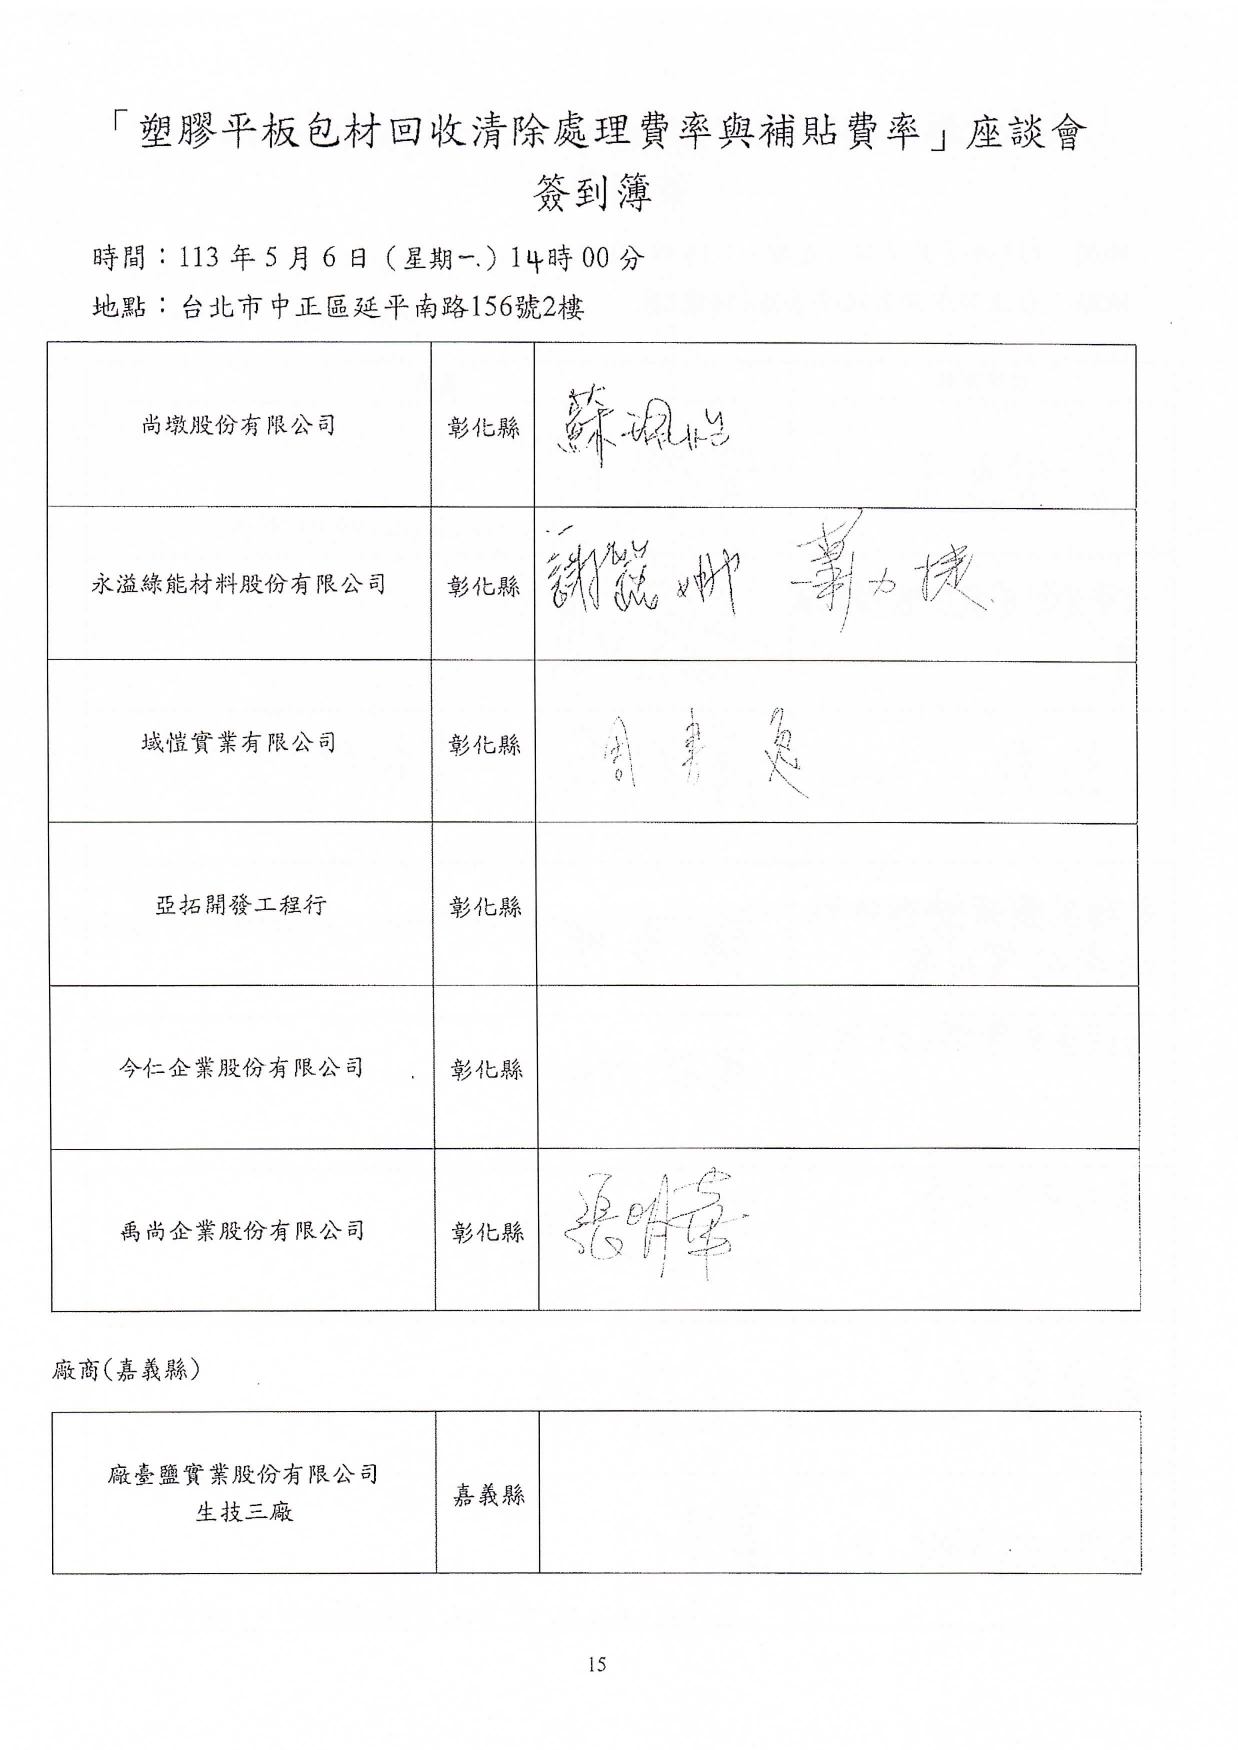 「塑膠平板包材回收清除處理費率與補貼費率」座談會
簽到簿
時間：113 年 5 月 6 日（星期一）14時 00 分
地點：台北市中正區延平南路156號2樓
尚墩股份有限公司 彰化縣 蘇珮怡
永溢綠能材料股份有限公司 彰化縣 謝 娜 力捷
域愷實業有限公司 彰化縣 周
亞拓開發工程行 彰化縣
今仁企業股份有限公司 彰化縣
禹尚企業股份有限公司 彰化縣 張明
廠商(嘉義縣)
廠臺鹽實業股份有限公司 嘉義縣
生技三廠
15